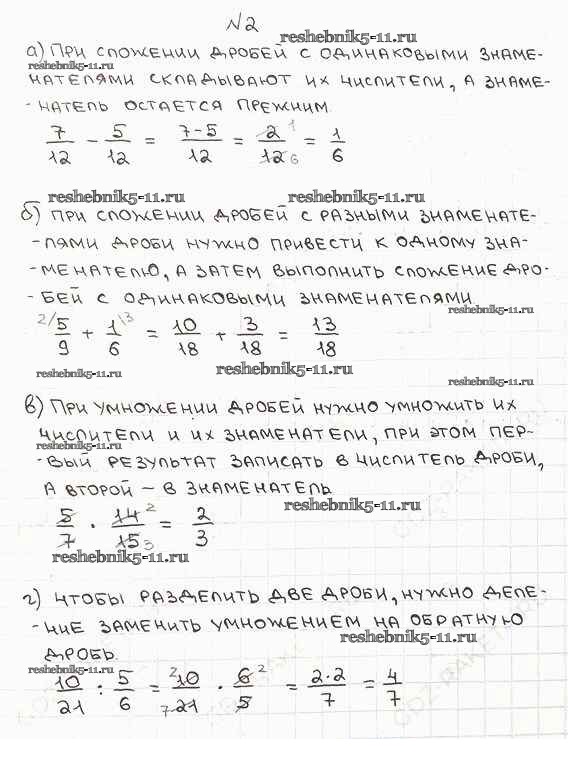 №2
reshebnik5-11.ru
а) При сложении дробей с одинаковыми знаме-
reshebnik5-11.ru
нателями складывают их числители, а знаме-
-натель остается прежним.
7/12 - 5/12 = 7-5/12 = 2 1/12 6 = 1/6
reshebnik5-11.ru reshebnik5-11.ru
б) При сложении дробей с разными знаменате-
-лями дроби нужно привести к одному зна-
-менателю, а затем выполнить сложение дро-
-бей с одинаковыми знаменателями.
reshebnik5-11.ru
2/ 5/9 + 1/6 \3 = 10/18 + 3/18 = 13/18
reshebnik5-11.ru reshebnik5-11.ru
reshebnik5-11.ru
в) При умножении дробей нужно умножить их
числители и их знаменатели, при этом пер-
reshebnik5-11.ru
-вый результат записать в числитель дроби,
а второй – в знаменатель
reshebnik5-11.ru
5/7 · 14 2/15 3 = 2/3
reshebnik5-11.ru
г) Чтобы разделить две дроби, нужно деле-
-ние заменить умножением на обратную
reshebnik5-11.ru
дробь.
reshebnik5-11.ru
10/21 : 5/6 = 2 10/7 21 · 6 2/5 = 2·2/7 = 4/7